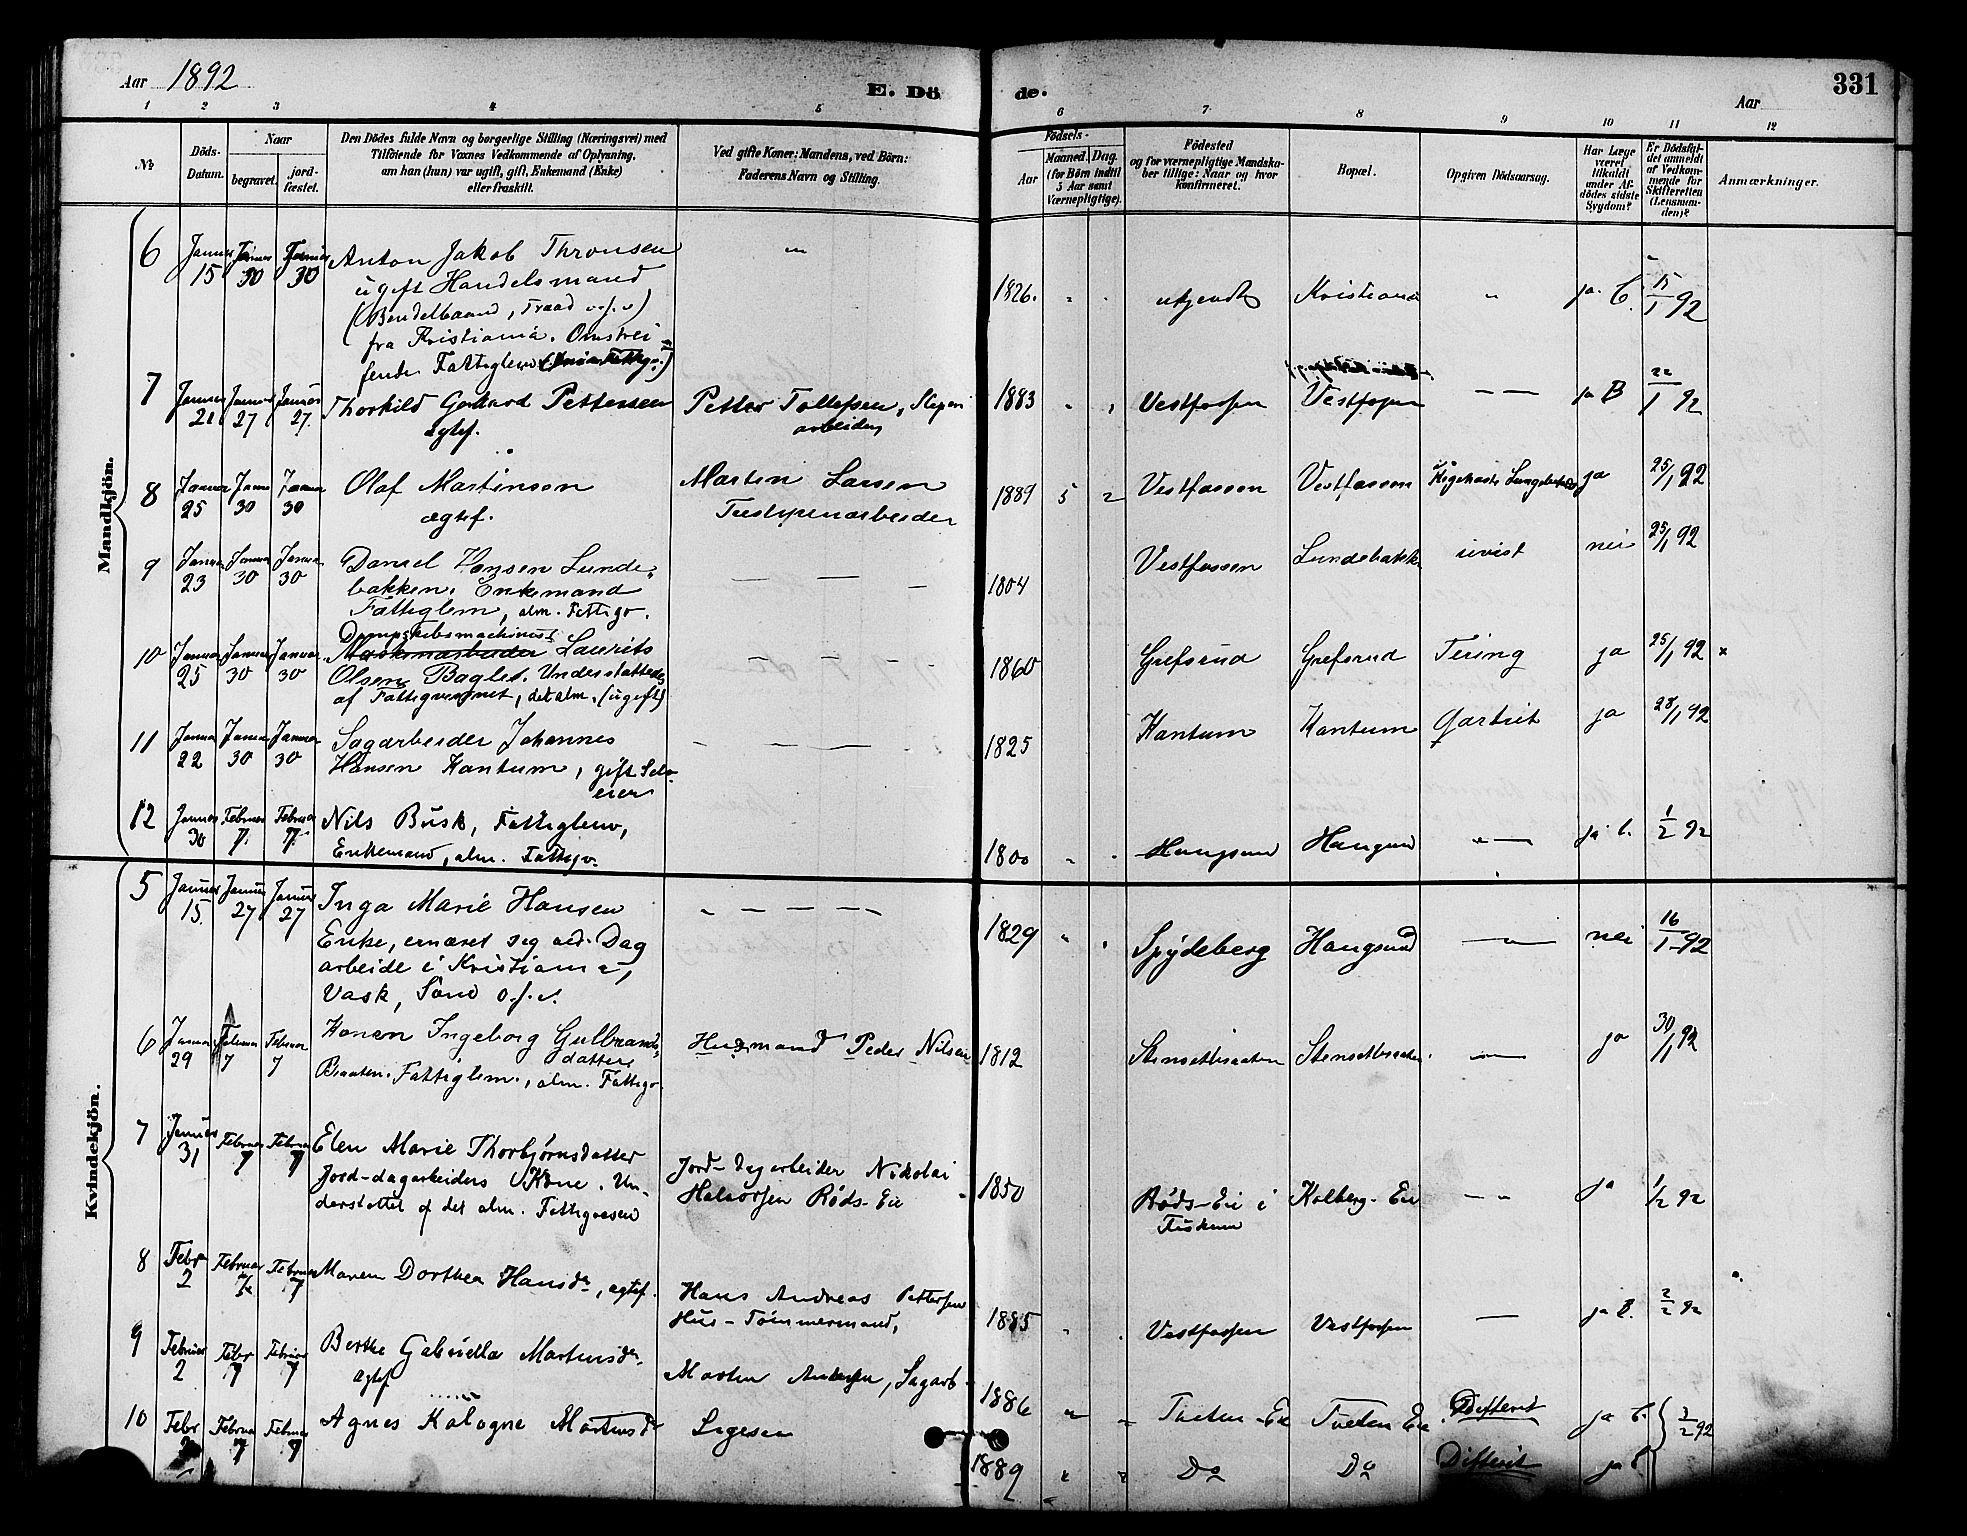 Aar 1892
E. Dö
de.
Aar
331
1 2 3 4 5 6 7 8 9 10 11 12
No
Döds-
Datum.
Naar
begravet.
jord-
fæstet.
Den Dödes fulde Navn og borgerlige Stilling (Næringsvei) med
Tilföiende for Voxnes Vedkommende af Oplysning,
om han (hun) var ugift, gift, Enkemand (Enke)
eller fraskilt.
Ved gifte Koner: Mandens, ved Börn:
Faderens Navn og Stilling.
Födsels-
Aar
Maaned. Dag.
(for Börn indtil
5 Aar samt
Værnepligtige).
Födested
og for værnepligtige Mandska-
ber tillige: Naar og hvor
konfirmeret.
Bopæl.
Opgiven Dödsaarsag.
Har Læge
været
tilkaldt
under Af-
dödes sidste
Sygdom?
Er Dödsfal-
det anmeldt
af Vedkom-
mende for
Skifteretten
(Lensman-
den)?
Anmærkninger.
Mandkjön.
6 Januar 15 Januar 30 Januar 30 Anton Jakob Thronsen " 1826. " " ukjendt Kristiania " ja. C. 15/1 92
ugift Handelsmand
(Bendelbaand, Traad o.s.v)
fra Kristiania. Omstrei-
fende Fattiglem
7 Januar 21 Januar 27 Januar 27. Thorkild Gerhard Pettersen Petter Tollefsen, Sliperi 1883 " " Vestfossen Vestfossen — — ja B 22/1 92
ægtef. arbeider
8 Januar 25 Januar 30 Januar 30 Olaf Martinsen Martin Larsen 1889 5 2 Vestfossen Vestfossen Kighoste Lungebetæ ja 25/1 92
ægtef. Træsliperiarbeider
9 Januar 23 Januar 30 Januar 30 Daniel Hansen Lunde- — — — 1804 Vestfossen Lundebakk uvist nei 25/1 92
bakken. Enkemand
Fattiglem, alm. Fattigv.
Dampskibsmachinist
10 Januar 25 Januar 30 Januar 30 Maskinarbeider Laurits — — — — 1860 Grefsrud Grefsrud Tæring ja 25/1 92 x
Olsen Baglet. Understøttedes
af Fattigvæsenet, det alm. (ugift)
11 Januar 22 Januar 30 Januar 30 Sagarbeider Johannes — — — — 1825 Kantum Kantum Gastrit ja 28/1 92
Hansen Kantum, gift Selv-
eier
12 Januar 30 Februar 7. Februar 7. Nils Busk, Fattiglem, 1800 " " Haugsund Haugsund " — ja C. 1/2 92
Enkemand, alm. Fattigv.
Kvindekjön.
5 Januar 15. Januar 27 Januar 27 Inga Marie Hansen — — — — 1829 " " Spydeberg Haugsund — " — nei 16/1 92
Enke, ernæret seg ved Dag
arbeide i Kristiania,
Vask, Søm o.s.v.
6 Januar 29 Februar 7 Februar 7 Konen Ingeborg Gulbrands- Husmand Peder Nilsen 1812 Stensetbraaten Stensetbraaten — ja 30/1 92
datter
Braaten. Fattiglem., alm. Fattigv.
7 Januar 31 Februar 7 Februar 7 Elen Marie Thorbjørnsdatter Jord-dagarbeider Nikolai 1850 Røds-Eie i Kolberg-Eie — " ja 1/2 92
Jord-dagarbeiders Kone. Un- Halvorsen Røds-Eie Fiskum
derstøttet af det alm. Fattigvæsen
8 Febr 2 Februar 7 Februar 7 Maren Dorthea Hansdr, ægtef. Hans Andreas Pettersen 1885 " " Vestfossen Vestfossen — ja B. 2/2 92
Hus-Tømmermand,
9 Februar 2 Febr 7 Februar 7 Berthe Gabriella Martinsdr. Martin Andersen, Sagarb- 1886 " " Tveten-Eie Tveten Eie Difterit ja C. 3/2 92
ægtef
10 Febr Februar 7 Februar 7 Agnes Martinsdr 1889 " " Do Do Difterit ja C